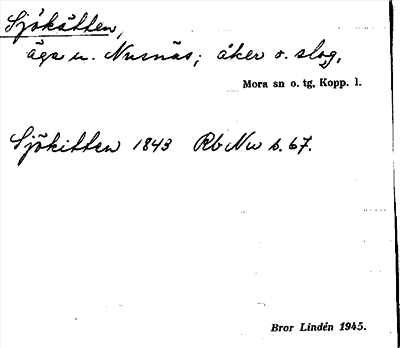 Sjökätten,
äga u. Nusnäs; åker o. slog.
Mora sn o. tg, Kopp. l.
Sjökitten 1843 Rb Nu s. 67.
Bror Lindén 1945.